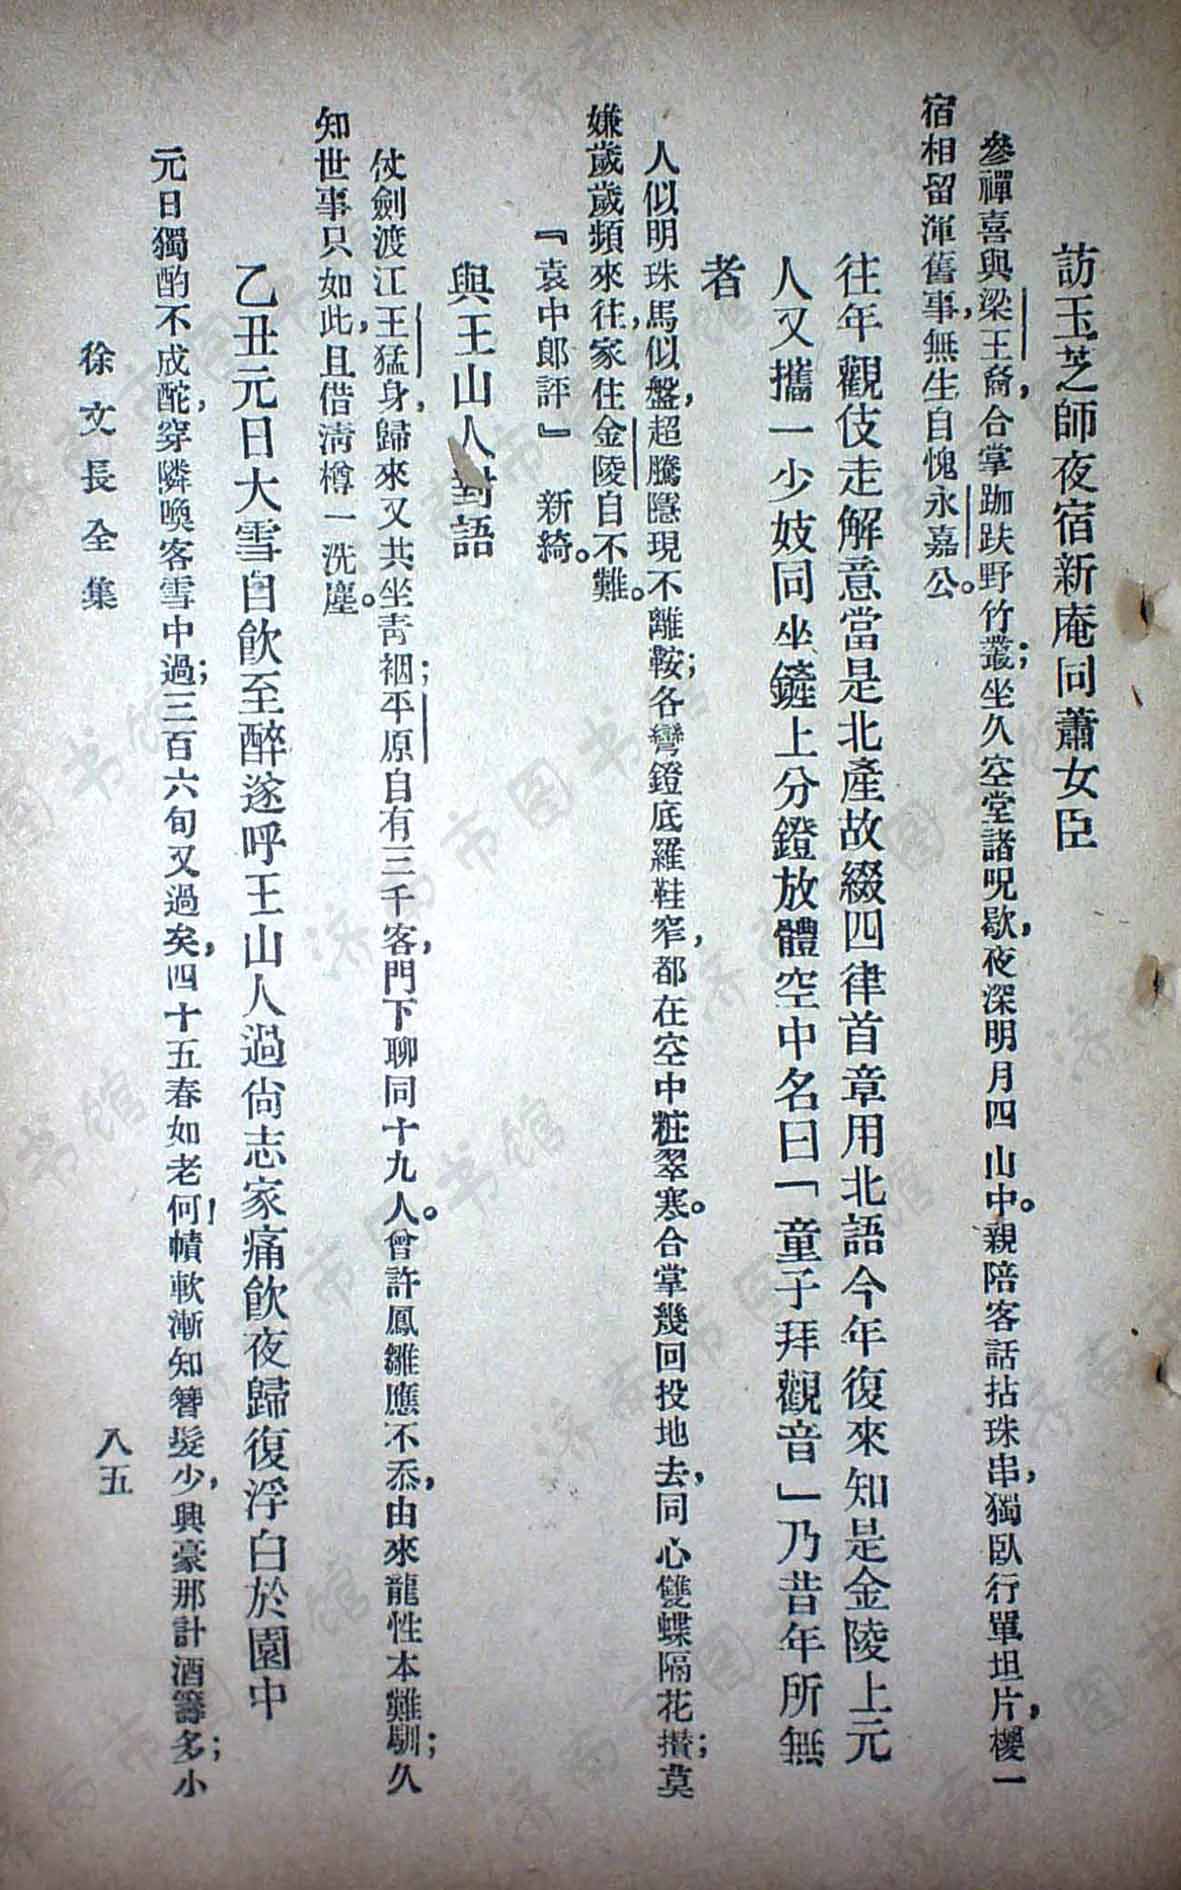 訪玉芝師夜宿新庵同蕭女臣
參禪喜與梁王裔，合掌跏趺野竹叢；坐久空堂諸呪歇，夜深明月四山中。親陪客話拈珠串，獨臥行單坦片㮶，一
宿相留渾舊事，無生自愧永嘉公。
往年觀伎走解意當是北產故綴四律首章用北語今年復來知是金陵上元
人又攜一少妓同坐䥥上分鐙放體空中名曰「童子拜觀音」乃昔年所無
者
人似明珠馬似盤，超騰隱現不離鞍；各彎鐙底羅鞋窄，都在空中粧翠寒。合掌幾回投地去，同心雙蝶隔花攢；莫
嫌歲歲頻來往，家住金陵自不難。
『袁中郎評』　新綺。
與王山人對語
仗劍渡江王猛身，歸來又共坐靑裀；平原自有三千客，門下聊同十九人。曾許鳳雛應不忝，由來龍性本難馴；久
知世事只如此，且借淸樽一洗塵。
乙丑元日大雪自飮至醉遂呼王山人過尙志家痛飮夜歸復浮白於園中
元日獨酌不成酡，穿隣喚客雪中過；三百六旬又過矣，四十五春如老何！幘軟漸知簪髮少，興豪那計酒籌多；小
徐文長全集
八五